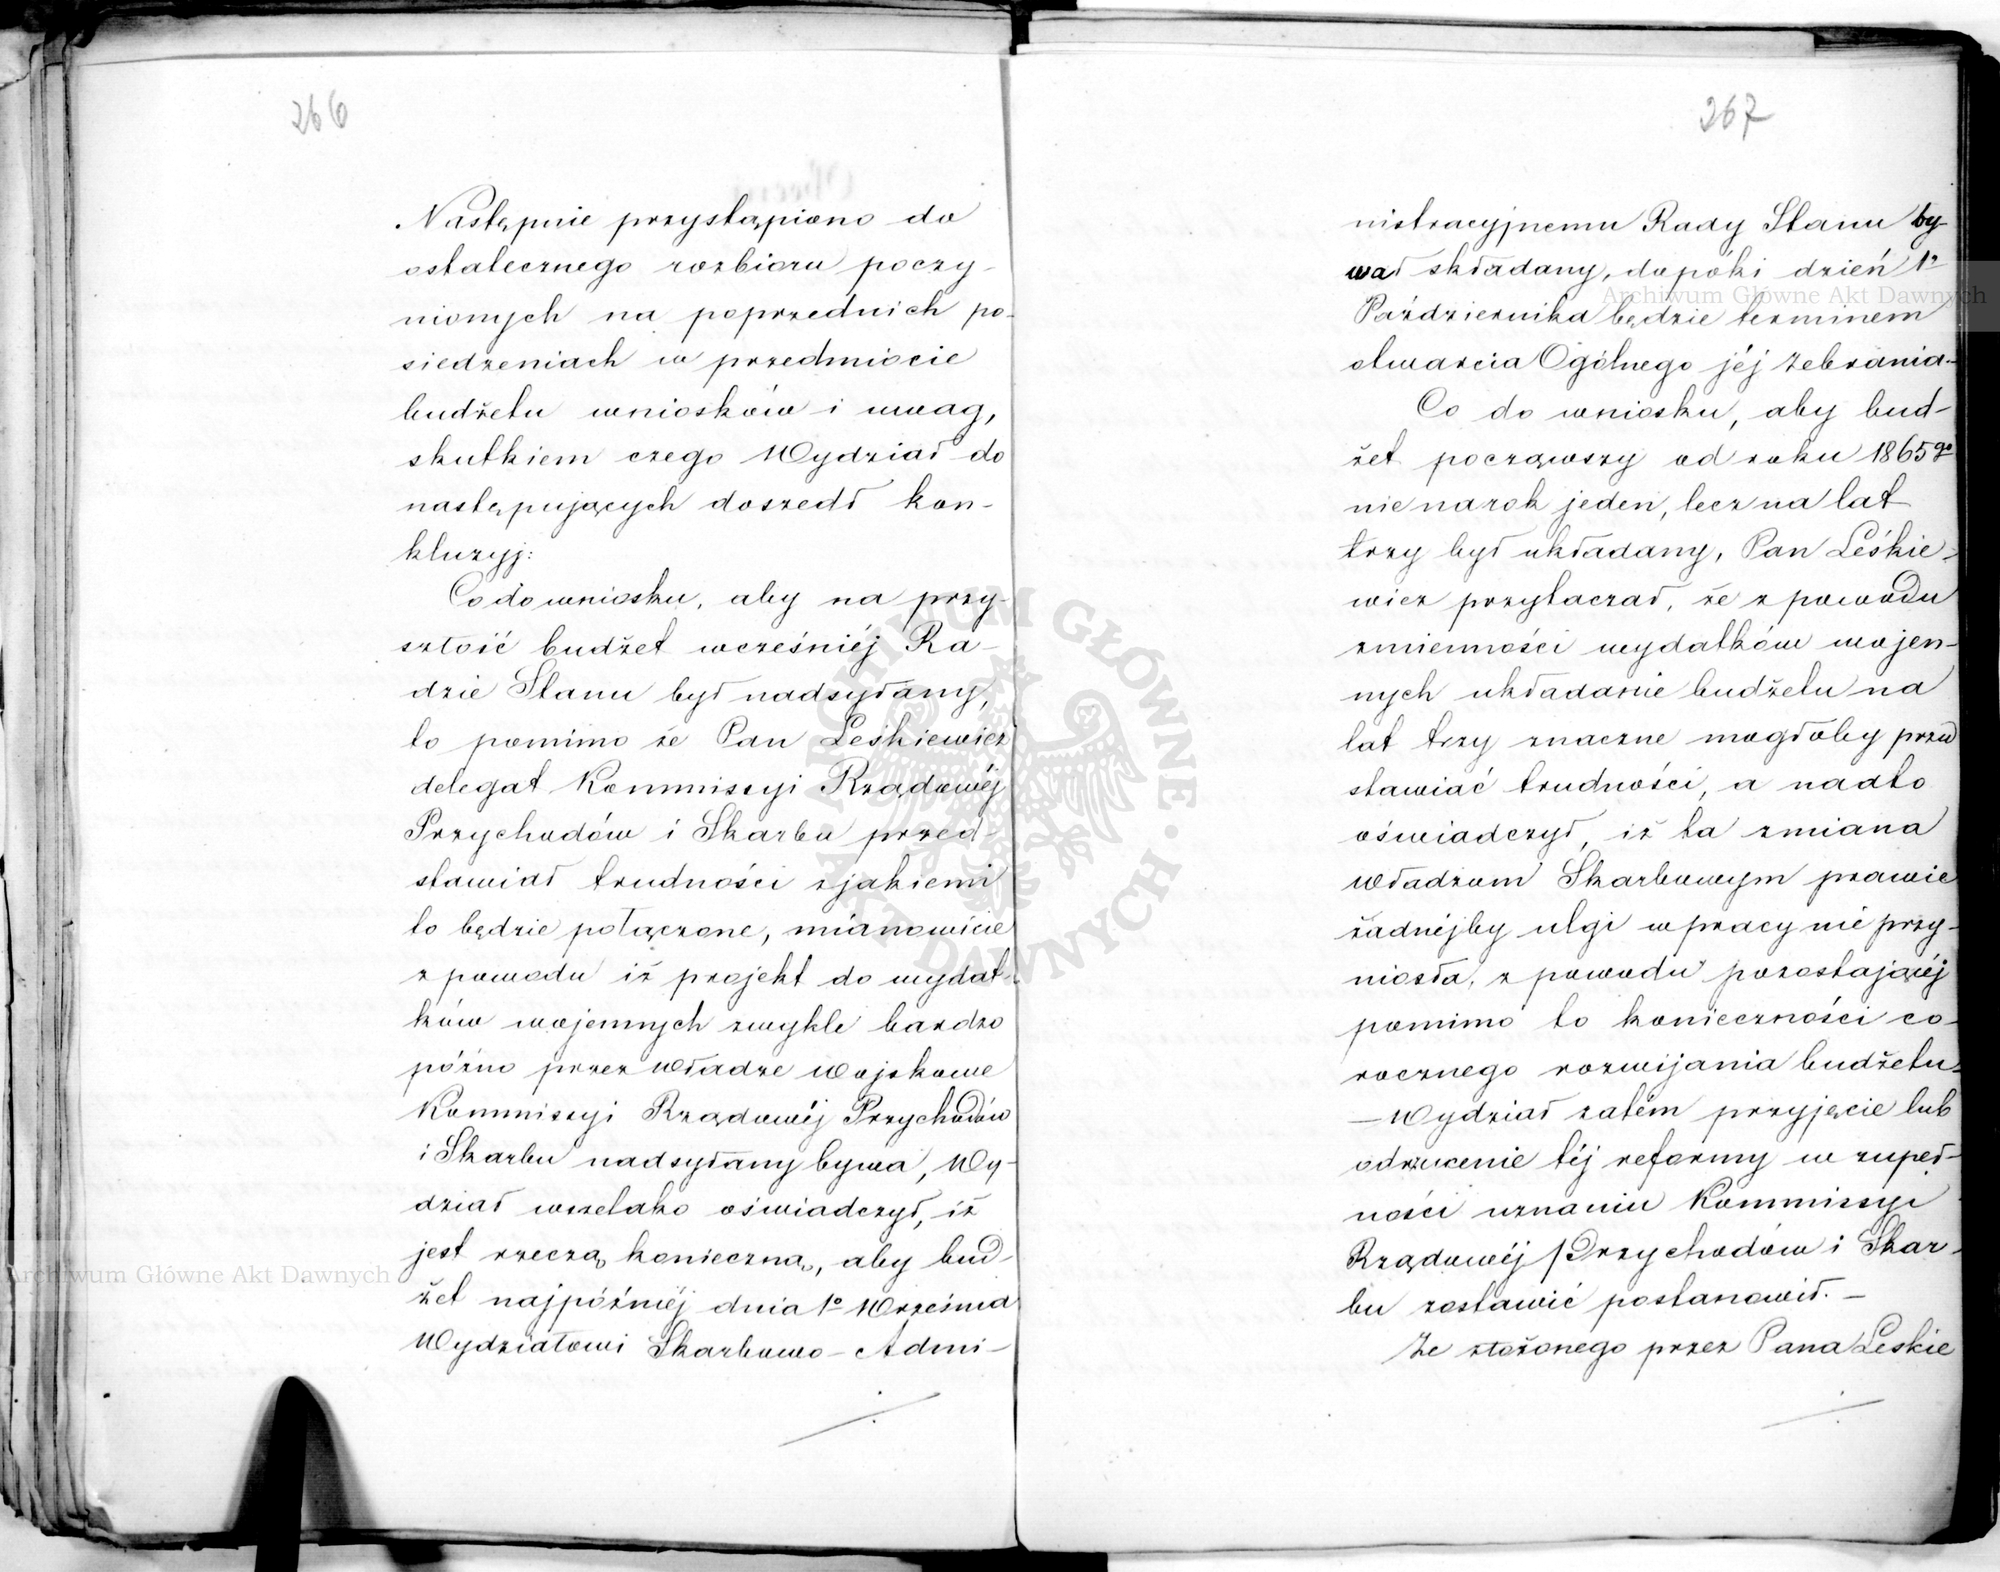 266
Następnie przystąpiono do
ostatecznego rozbioru poczy-
nionych na poprzednich po-
siedzeniach w przedmiocie
budżetu wniosków i uwag,
skutkiem czego Wydział do
następujących doszedł kon-
kluzyj:
Co do wniosku, aby na przy-
szłość budżet wcześniéj Ra-
dzie Stanu był nadsyłany,
to pomimo że Pan Leśkiewicz
delegat Kommissyi Rządowéj
Przychodów i Skarbu przed-
stawiał trudności z jakiemi
to będzie połączone, mianowicie
z powodu iż projekt do wydat-
ków wojennych zwykle bardzo
późno przez Władze Wojskowe
Kommissyi Rządowéj Przychodów
i Skarbu nadsyłany bywa, Wy-
dział wszelako oświadczył, iż
jest rzeczą konieczną, aby bud-
żet najpóźniéj dnia 1º Września
Wydziałowi Skarbowo-Admi-
267
nistracyjnemu Rady Stanu by-
wał składany, dopóki dzień 1º
Października będzie terminem
otwarcia Ogólnego jéj zebrania.
Co do wniosku, aby bud-
żet począwszy od roku 1865 go
nie na rok jeden, lecz na lat
trzy był układany, Pan Leśkie-
wicz przytaczał, że z powodu
zmienności wydatków wojen-
nych układanie budżetu na
lat trzy znaczne mogłoby przed
stawiać trudności, a nadto
oświadczył, iż ta zmiana
Władzom Skarbowym prawie
żadnéjby ulgi w pracy nie przy-
niosła, z powodu pozostającéj
pomimo to konieczności co-
rocznego rozwijania budżetu.
— Wydział zatém przyjęcie lub
odrzucenie téj reformy w zupeł-
ności uznaniu Kommissyi
Rządowéj Przychodów i Skar-
bu zostawić postanowił. —
Ze złożonego przez Pana Leskie
Archiwum Główne Akt Dawnych
Archiwum Główne Akt Dawnych
ARCHIWUM GŁÓWNE · AKT DAWNYCH ·